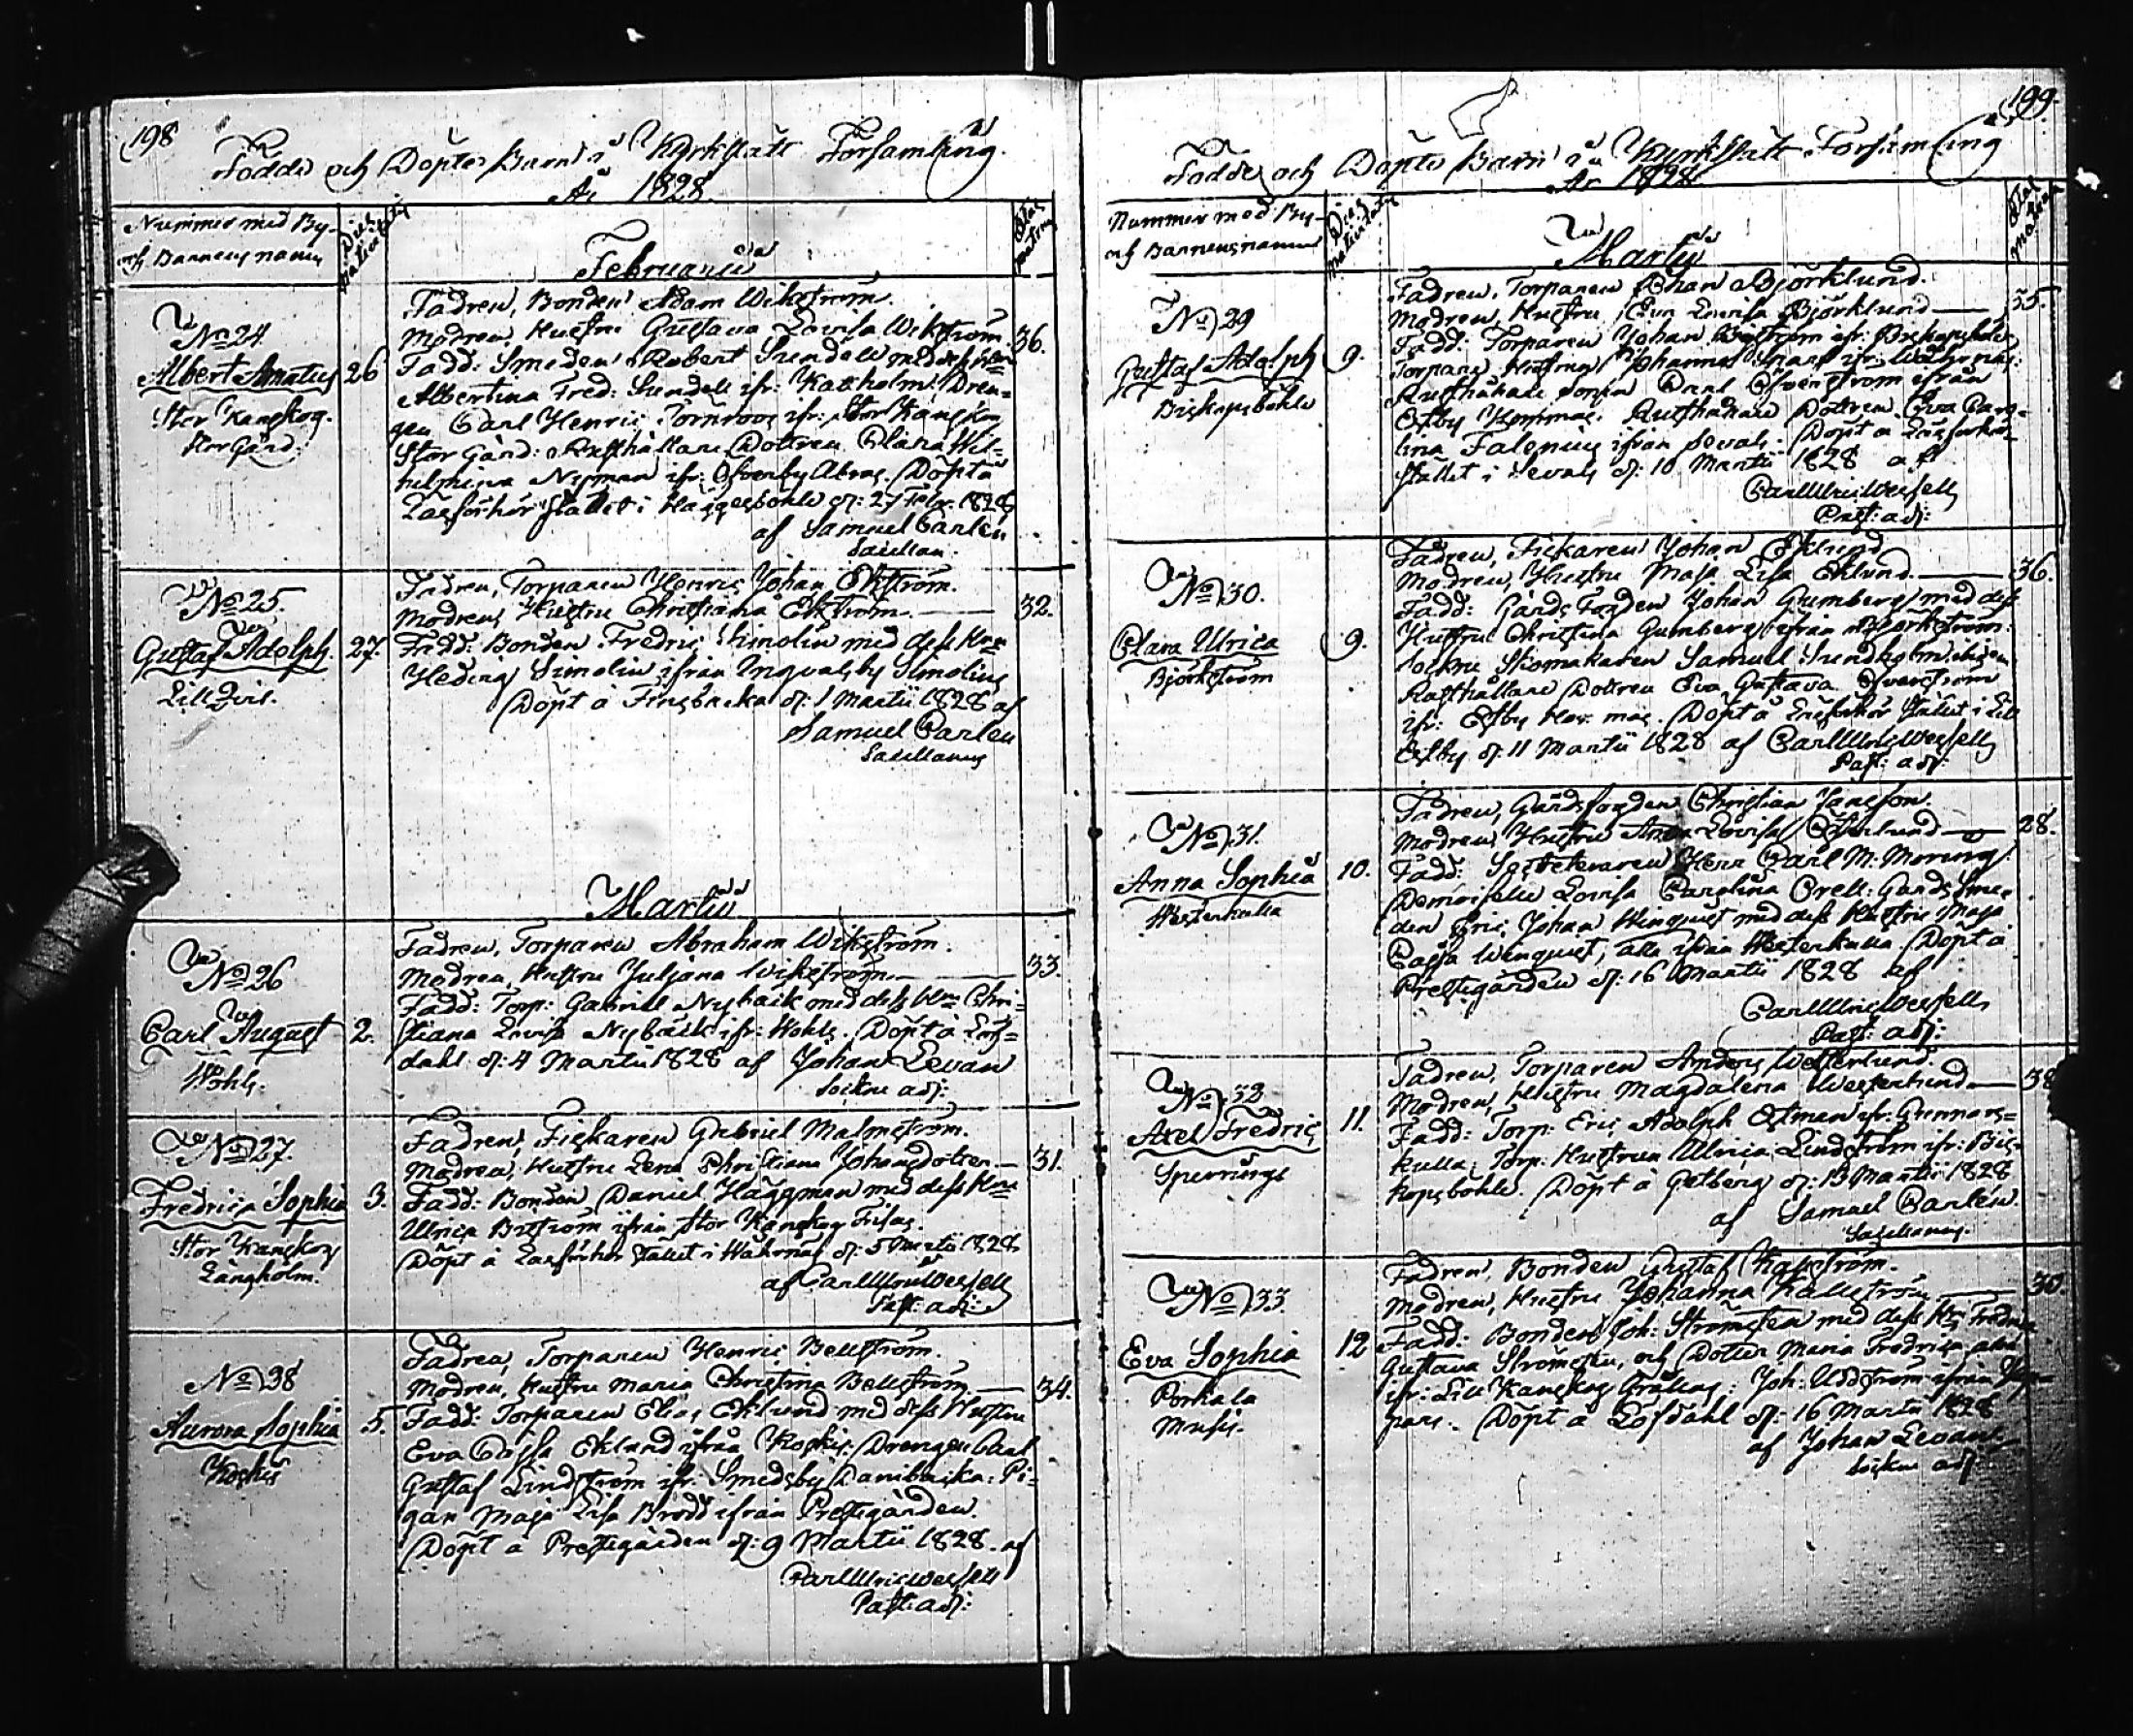 198
Födde och Döpte Barn i Kyrkslätt Församling.
År 1828.
Nummer med By-
och Barnens namn
Dies
Ætas
Februarii
No 24.
Albert Amatus
Stor Kangskog.
Storgård.
26
Fadren, Bonden Adam Wikström.
Modren, Hustru Gustava Lovisa Wikström.
36.
Fadd: Smeden Robert Sundell med dess
Albertina Fred: Sundell ifr: Kattholm. Dren-
gen Carl Henric Törnroos ifr: Stor Kangskog
Stor Gård: Rusthållare Dottren Clara Wil-
helmina Nyman ifr: Öfverby Döpt å
Läsförhör stället i Häggesböhle d: 27 Febr. 1828
af Samuel Carlen
Sacellan:
No 25.
Gustaf Adolph
27.
Fadren, Torparen Henric Johan Ekström.
Modren, Hustru Christiana Ekström.
32.
Fadd: Bonden Fredric Simolin med dess Hru
Hedvig Simolin ifrån Ingvalsby Simolins
Döpt å Finsbacka d: 1 Martii 1828 af
Samuel Carlen
Sacellanus
Martii
No 26
Carl August
Wohls.
2.
Fadren, Torparen Abraham Wikström.
Modren, Hustru Juliana Wikström.
33.
Fadd: Torp: Gabriel Nybäck med dess Hru Chri-
stiana Lovisa Nybäck ifr: Wohls. Döpt å Löf-
dahl d: 4 Martii 1828 af Johan Levan
Sockne adj:
No 27.
Fredrica Sophia
Stor Kangskog
Långholm.
3.
Fadren, Fiskaren Gabriel Malmström.
Modren, Hustru Lena Christiana Johansdotter.
31.
Fadd: Bonden Daniel Häggman med dess Hru
Ulrica ifrån Stor Kangskog
Döpt å Läsförhör stället i Wåhrnäs d: 5 Martii 1828
af Carl Ulric Wessell
Past: adj:
No 38
Aurora Sophia
Koskis
5.
Fadren, Torparen Henric Bellström.
Modren, Hustru Maria Christina Bellström.
34.
Fadd: Torparen Elias Eklund med dess Hustru
Eva Cajsa Eklund ifrån Koskis: Drengen Carl
Gustaf Lindström ifr: Smedsby Danibacka: Pi-
gan Maja Lisa Brodd ifrån Prestgården.
Döpt å Prestgården d: 9 Martii 1828. af
Carl Ulric Wessell
Past: adj:
199.
Födde och Döpte Barn i Kyrkslätt Församling
År 1828.
Nummer med By-
och Barnens namn
Dies
Ætas
Martii
No 29
Gustaf Adolph
Biskopsböhle
9.
Fadren, Torparen Johan Björklund.
Modren, Hustru Eva Lovisa Björklund
35.
Fadd: Torparen Johan ifr: Biskopsböhle
Torpare Hustrun Johanna ifr: Wåhrnäs:
Rusthållare Sonen Carl Öfverström ifrån
Estby Rusthållare Dottren Eva Caro-
lina Falenius ifrån Sevals. Döpt å Läsförhör-
stället i Sevals d: 10 Martii 1828 af
Carl Ulric Wessell
Past: adj:
No 30.
Clara Ulrica
Björkström
9.
Fadren, Fiskaren Johan Eklund
Modren, Hustru Maja Lisa Eklund.
36.
Fadd: Gårds Fogden Johan Gumberg med dess
Hustru Christina Gumberg ifrån Björkström:
Sockne Skomakaren Samuel Sundholm
Rusthållare Dottren Eva Gustava Öfverström
ifr: Estby Döpt å Läsförhör stället i Lill
Estby d: 11 Martii 1828 af Carl Ulric Wessell
Past: adj:
No 31.
Anna Sophia
Westerkulla
10.
Fadren, Gårdsfogden Christian Jansson.
Modren, Hustru Anna Lovisa Österlund
28.
Fadd: Herr Carl M. Moring:
Demoiselle Lovisa Carolina Orell: Gårds Sme-
den Eric Johan Winquist med dess Hustru Maja
Cajsa Winquist, alla ifrån Westerkulla. Döpt å
Prestgården d: 16 Martii 1828 af
Carl Ulric Wessell
Past: adj:
No 32
Axel Fredric
11.
Fadren, Torparen Anders Westerlund
Modren, Hustru Magdalena Westerlund
38
Fadd: Torp: Eric Adolph Östman ifr: Gunnars-
kulla; Torp. Hustrun Ulrica Lindström ifr: Bis-
kopsböhle. Döpt å Getberg d: 13 Martii 1828
af Samuel Carlen.
Sacellanus.
No 33
Eva Sophia
Porkala
12
Fadren, Bonden Gustaf Kallström.
Modren, Hustru Johanna Kallström
30.
Fadd: Bonden Joh: Strömsten med dess Hru Fredrica
Gustava Strömsten, och Dotter Maria Fredrica
ifr: Lill Kangskog Joh: Uddström ifrån
Döpt å Löfdahl d: 16 Martii 1828
af Johan Levan
Sockne adj